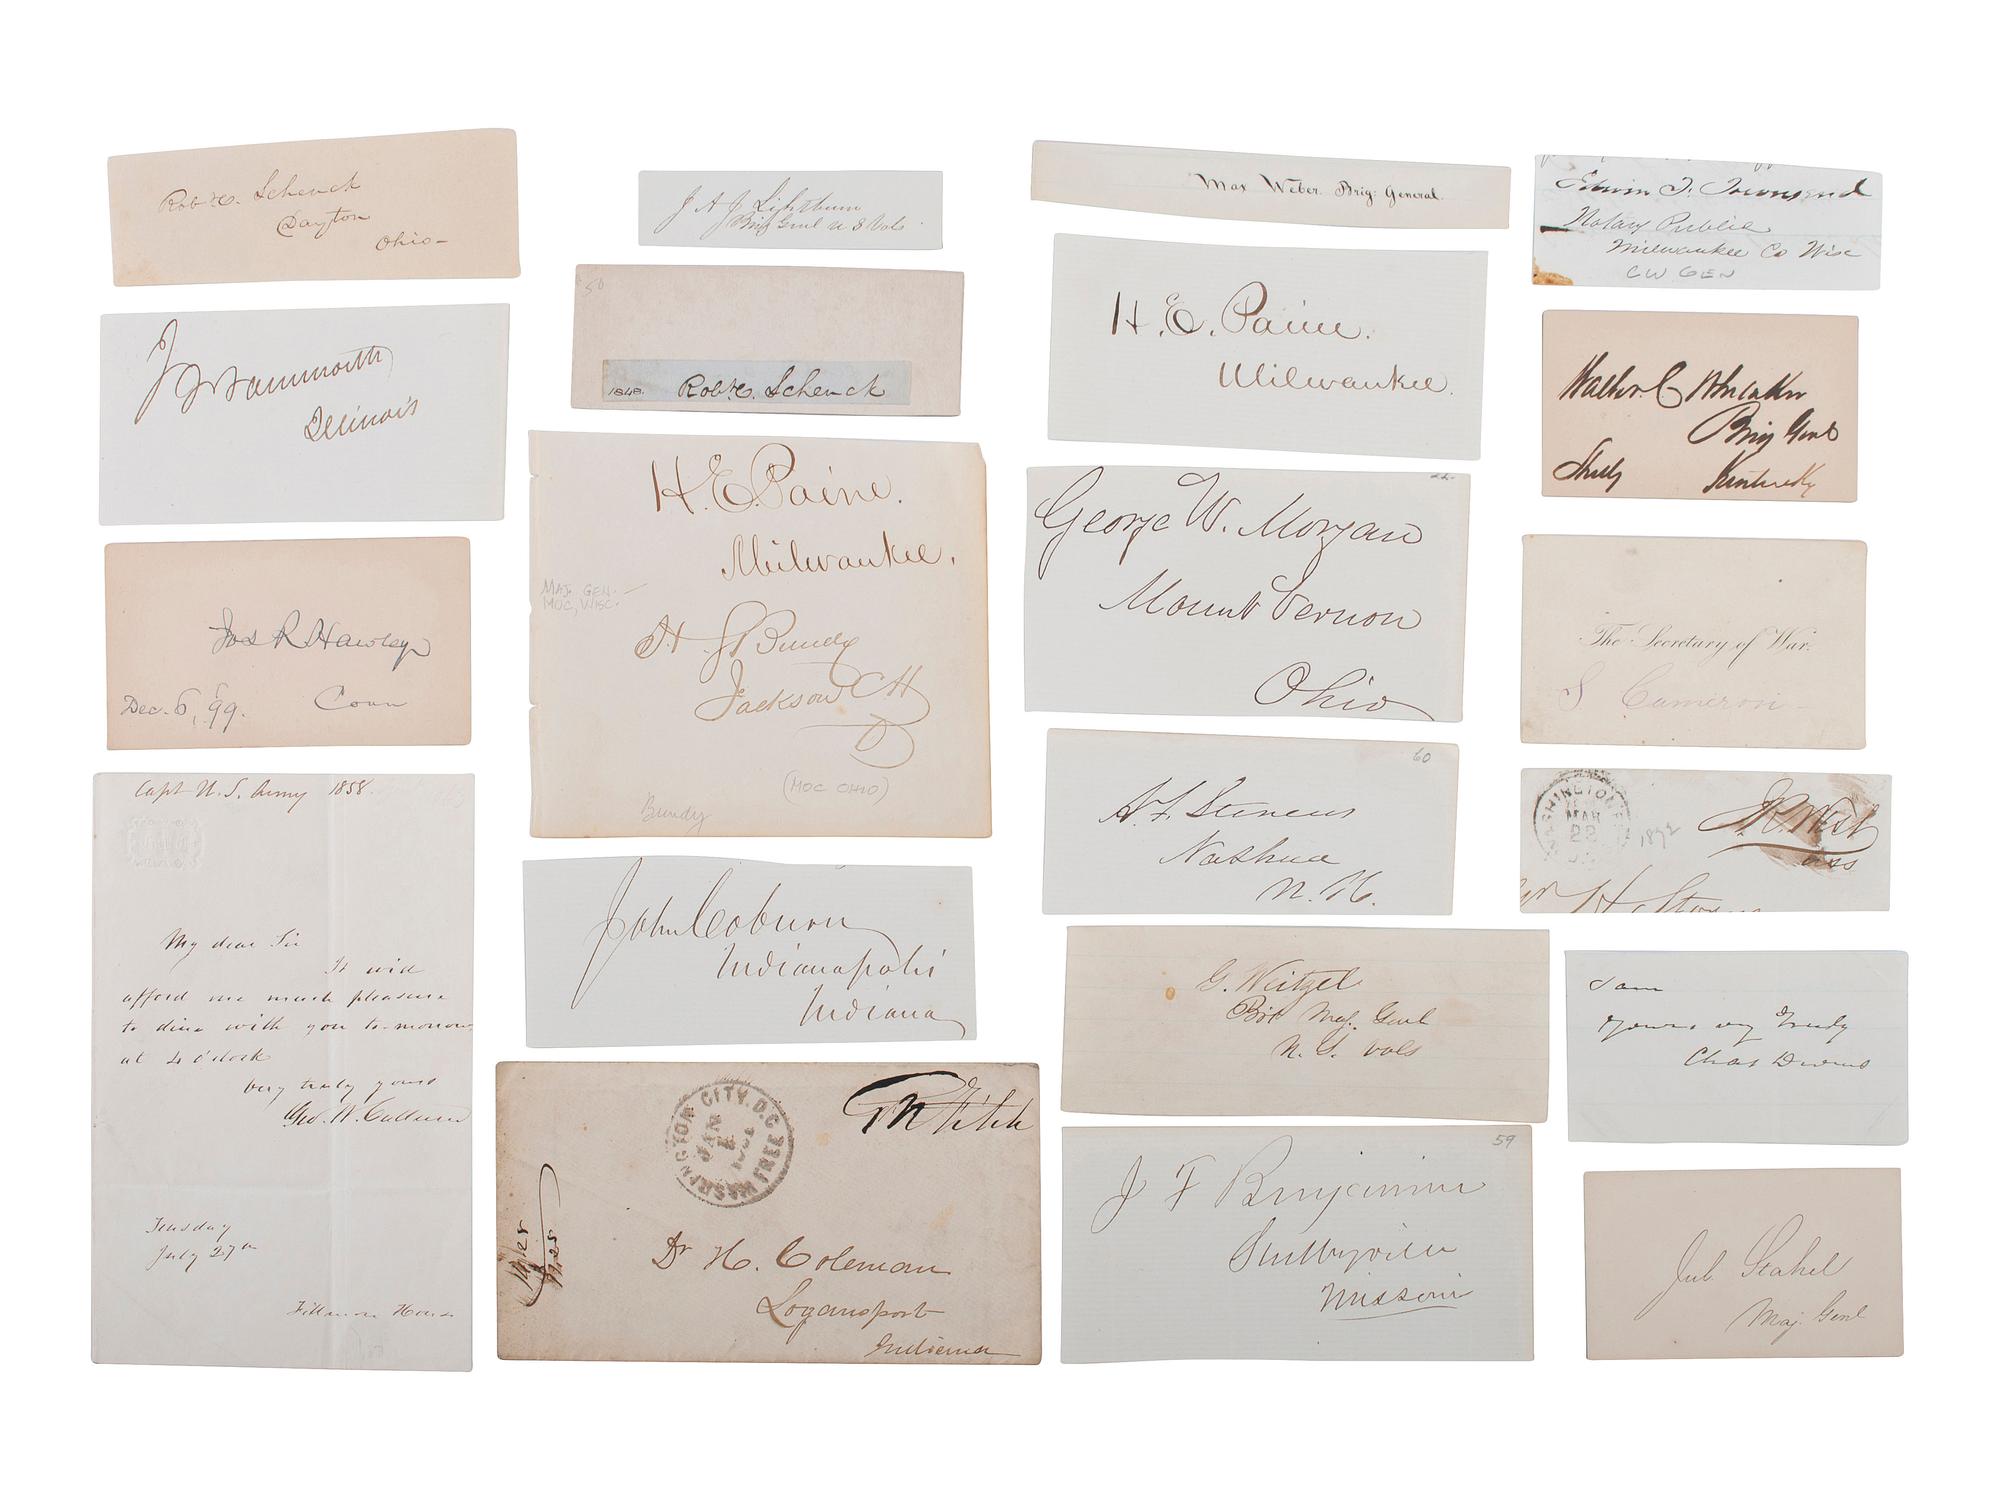 Robt C. Schenck
Dayton
Ohio-
J Farnsworth
Illinois
Jos R Hawley
Dec. 6, '99.
Conn
Capt U. S. Army 1858.
My dear Sir
It will
afford me much pleasure
to dine with you to-morrow
at 4 o'clock
Very truly yours
Geo. W. Cullum
Tuesday
July 27th
Fillmore House
J A J Lightburn
Brig Genl U S Vols.
50
1848. Robt C. Schenck
H. E. Paine.
Milwaukee.
MAJ. GEN.
MOC, WISC.
H S Bundy
Jackson CH
(MOC OHIO)
Bundy
John Coburn
Indianapolis
Indiana
WASHINGTON CITY. D.C.
JAN
FREE
G N Fitch
Dr H. Coleman
Logansport
Indiana
Max Weber. Brig: General.
H. E. Paine.
Milwaukee.
George W. Morgan
Mount Vernon
Ohio
60
A. F. Stevens
Nashua
N. H.
G. Weitzel
Bvt Maj. Genl
U. S. Vols
59
J F Benjamin
Shelbyville
Missouri
Edwin T. Townsend
Notary Public
Milwaukee Co Wisc
CW GEN
Walter C Whitaker
Brig Genl
Shelby Kentucky
The Secretary of War.
S Cameron-
WASHINGTON
MAR
22
1872
J R West
USS
I am
Yours very truly
Chas Devens
Jul. Stahel
Maj. Genl